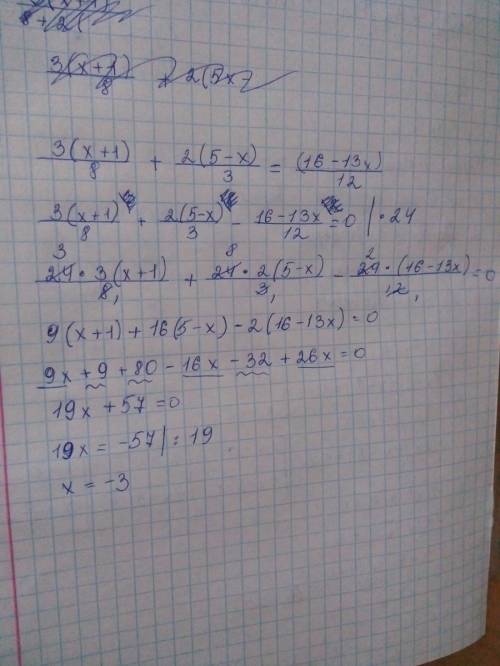 3(x+1)/8 + 2(5-x)/3 = (16-13x)/12
3(x+1)/8 + 2(5-x)/3 - 16-13x/12 = 0 | · 24
3 8 2
24·3(x+1)/8, + 24·2(5-x)/3, - 24·(16-13x)/12, = 0
9(x+1) + 16(5-x) - 2(16-13x) = 0
9x + 9 + 80 - 16x - 32 + 26x = 0
19x + 57 = 0
19x = -57 | : 19
x = -3